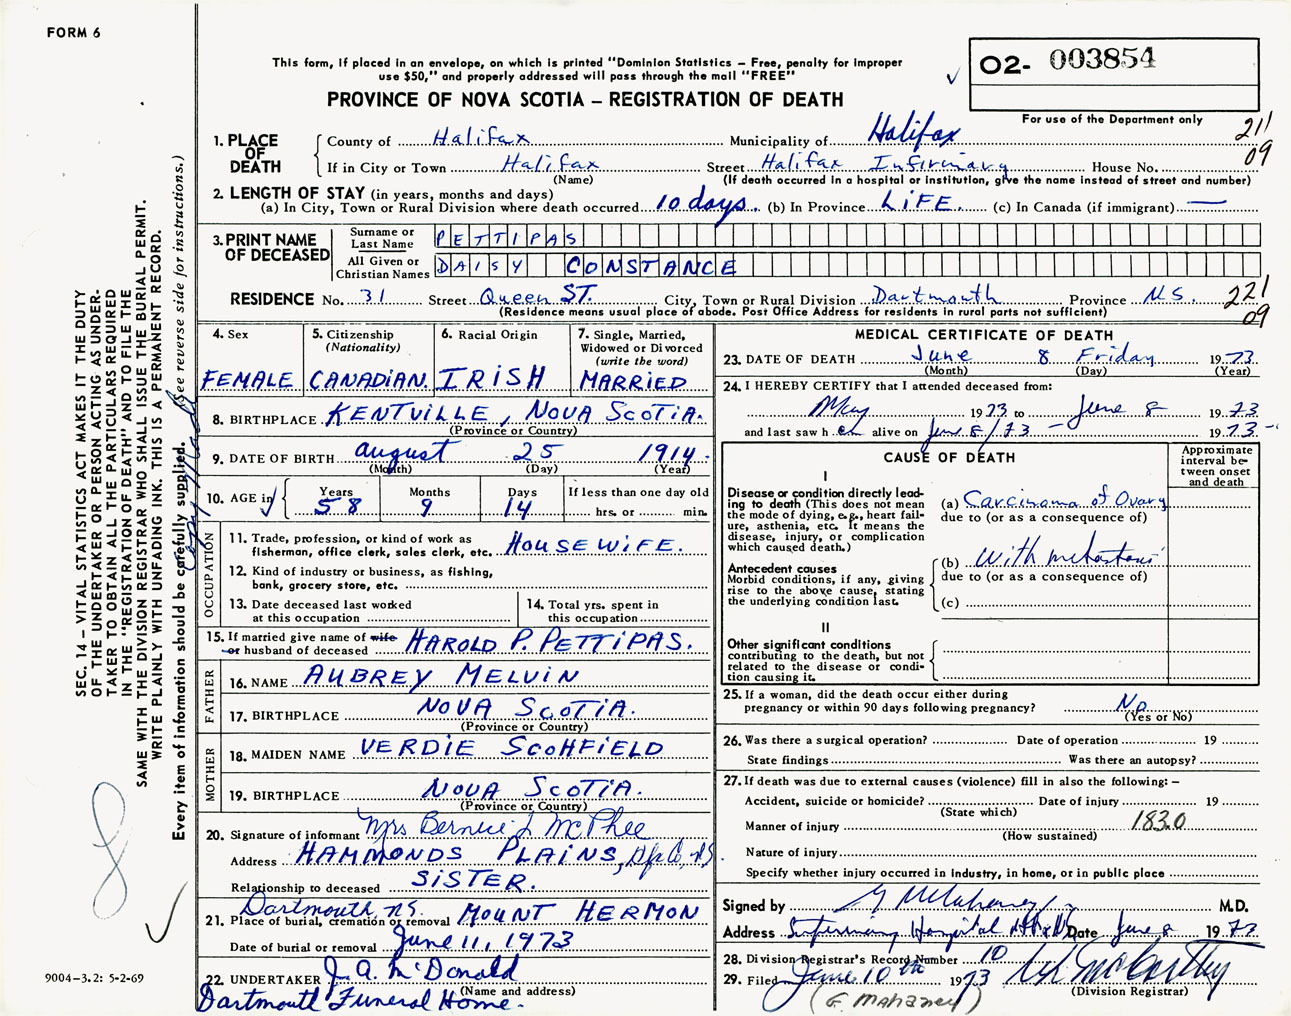 FORM 6
This form, if placed in an envelope, on which is printed "Dominion Statistics – Free, penalty for improper
use $50," and properly addressed will pass through the mail "FREE"
PROVINCE OF NOVA SCOTIA – REGISTRATION OF DEATH
02- 003854
For use of the Department only
211
09
1. PLACE OF DEATH
County of Halifax Municipality of Halifax
If in City or Town Halifax Street Halifax Infirmary House No.
(Name) (If death occurred in a hospital or institution, give the name instead of street and number)
2. LENGTH OF STAY (in years, months and days)
(a) In City, Town or Rural Division where death occurred 10 days. (b) In Province LiFE. (c) In Canada (if immigrant) —
3. PRINT NAME OF DECEASED
Surname or Last Name PETTIPAS
All Given or Christian Names DAISY CONSTANCE
RESIDENCE No. 31 Street Queen ST. City, Town or Rural Division Dartmouth Province N.S.
221
09
(Residence means usual place of abode. Post Office Address for residents in rural parts not sufficient)
4. Sex
FEMALE
5. Citizenship
(Nationality)
CANADIAN.
6. Racial Origin
IRISH
7. Single, Married,
Widowed or Divorced
(write the word)
MARRIED
8. BIRTHPLACE KENTVILLE, NOVA SCOTIA.
(Province or Country)
9. DATE OF BIRTH August 25 1914.
(Month) (Day) (Year)
10. AGE in
Years 58
Months 9
Days 14
If less than one day old
hrs. or min.
OCCUPATION
11. Trade, profession, or kind of work as
fisherman, office clerk, sales clerk, etc. HOUSEWIFE.
12. Kind of industry or business, as fishing,
bank, grocery store, etc.
13. Date deceased last worked
at this occupation
14. Total yrs. spent in
this occupation
15. If married give name of wife
or husband of deceased HAROLD P. PETTIPAS.
FATHER
16. NAME AUBREY MELVIN
17. BIRTHPLACE NOVA SCOTIA.
(Province or Country)
MOTHER
18. MAIDEN NAME VERDIE SCOHFIELD
19. BIRTHPLACE NOVA SCOTIA.
(Province or Country)
20. Signature of informant Mrs Bernice L McPhee
Address HAMMONDS PLAINS, Hfx Co, N.S.
Relationship to deceased SISTER.
Dartmouth, N.S.
21. Place of burial, cremation or removal MOUNT HERMON
Date of burial or removal June 11, 1973
22. UNDERTAKER J. A. McDonald
(Name and address)
Dartmouth Funeral Home.
MEDICAL CERTIFICATE OF DEATH
23. DATE OF DEATH June 8 Friday 1973.
(Month) (Day) (Year)
24. I HEREBY CERTIFY that I attended deceased from:
May 1973 to June 8 1973
and last saw her alive on June 8/73 — 1973 -
CAUSE OF DEATH
Approximate
interval be-
tween onset
and death
I
Disease or condition directly lead-
ing to death (This does not mean
the mode of dying, e.g., heart fail-
ure, asthenia, etc. It means the
disease, injury, or complication
which caused death.)
(a) Carcinoma of Ovary
due to (or as a consequence of)
Antecedent causes
Morbid conditions, if any, giving
rise to the above cause, stating
the underlying condition last.
(b) With metastasis
due to (or as a consequence of)
(c)
II
Other significant conditions
contributing to the death, but not
related to the disease or condi-
tion causing it.
25. If a woman, did the death occur either during
pregnancy or within 90 days following pregnancy? No
(Yes or No)
26. Was there a surgical operation? Date of operation 19
State findings Was there an autopsy?
27. If death was due to external causes (violence) fill in also the following: –
Accident, suicide or homicide? Date of injury 19
(State which)
Manner of injury 183.0
(How sustained)
Nature of injury
Specify whether injury occurred in industry, in home, or in public place
Signed by G Mahaney M.D.
Address Infirmary Hospital Date June 8 1973
28. Division Registrar's Record Number 10
29. Filed June 10th 1973
(Division Registrar)
(G. MAHANEY)
SEC. 14 – VITAL STATISTICS ACT MAKES IT THE DUTY
OF THE UNDERTAKER OR PERSON ACTING AS UNDER-
TAKER TO OBTAIN ALL THE PARTICULARS REQUIRED
IN THE "REGISTRATION OF DEATH" AND TO FILE THE
SAME WITH THE DIVISION REGISTRAR WHO SHALL ISSUE THE BURIAL PERMIT.
WRITE PLAINLY WITH UNFADING INK. THIS IS A PERMANENT RECORD.
Every item of information should be carefully supplied. (See reverse side for instructions.)
9004–3.2: 5-2-69